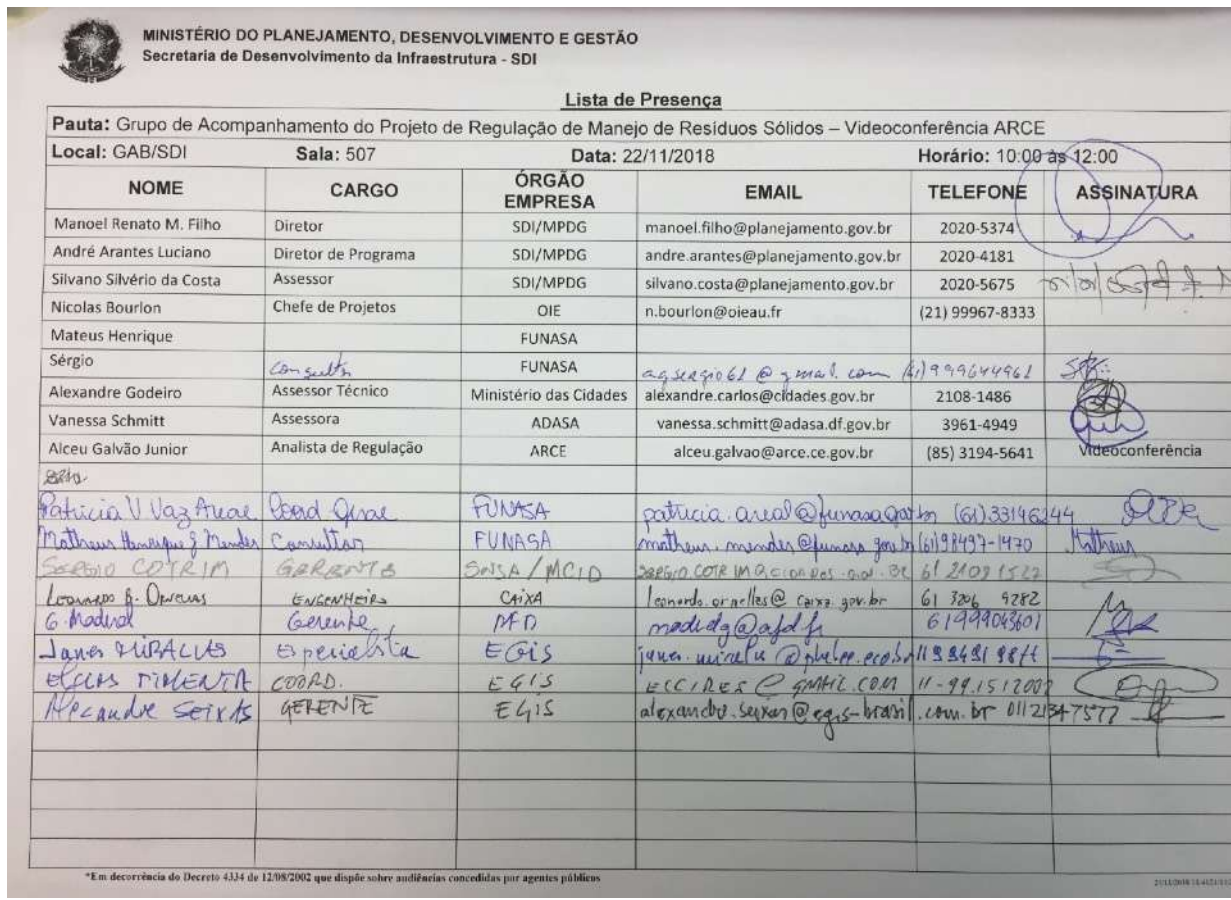 MINISTÉRIO DO PLANEJAMENTO, DESENVOLVIMENTO E GESTÃO
Secretaria de Desenvolvimento da Infraestrutura - SDI
Lista de Presença
Pauta: Grupo de Acompanhamento do Projeto de Regulação de Manejo de Resíduos Sólidos – Videoconferência ARCE
Local: GAB/SDI Sala: 507 Data: 22/11/2018 Horário: 10:00 às 12:00
NOME CARGO ÓRGÃO EMPRESA EMAIL TELEFONE ASSINATURA
Manoel Renato M. Filho Diretor SDI/MPDG manoel.filho@planejamento.gov.br 2020-5374
André Arantes Luciano Diretor de Programa SDI/MPDG andre.arantes@planejamento.gov.br 2020-4181
Silvano Silvério da Costa Assessor SDI/MPDG silvano.costa@planejamento.gov.br 2020-5675
Nicolas Bourlon Chefe de Projetos OIE n.bourlon@oieau.fr (21) 99967-8333
Mateus Henrique FUNASA
Sérgio FUNASA agsergio61@gmail.com (61)999644961
Alexandre Godeiro Assessor Técnico Ministério das Cidades alexandre.carlos@cidades.gov.br 2108-1486
Vanessa Schmitt Assessora ADASA vanessa.schmitt@adasa.df.gov.br 3961-4949
Alceu Galvão Junior Analista de Regulação ARCE alceu.galvao@arce.ce.gov.br (85) 3194-5641 Videoconferência
Patricia V Vaz Areal Coord Geral FUNASA (61)33146244
Matheus Henrique Mendes Consultor FUNASA (61)98497-1470 Matheus
SERGIO COTRIM GERENTE SNSA/MCID
Leonardo ENGENHEIRO CAIXA 61 3206 9282
Gerente AFD 61999043601
Especialista EGIS
PIMENTA COORD. EGIS
Alexandre SEIXAS GERENTE EGIS alexandre.seixas@egis-brasil.com.br
*Em decorrência do Decreto 4334 de 12/08/2002 que dispõe sobre audiências concedidas por agentes públicos